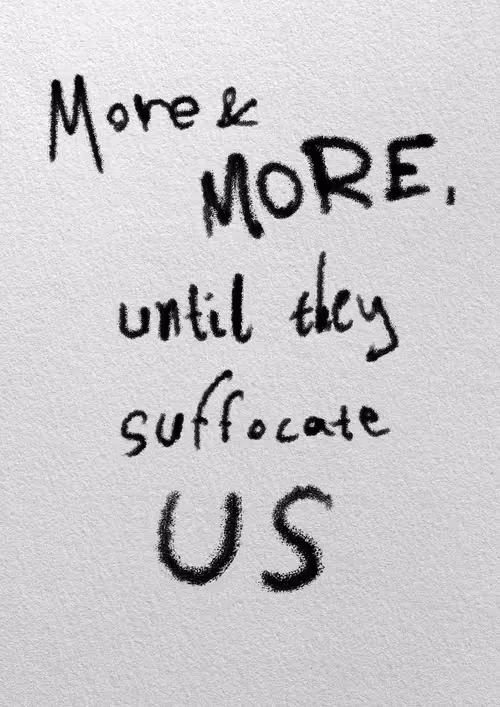 More &
MORE,
until they
suffocate
US